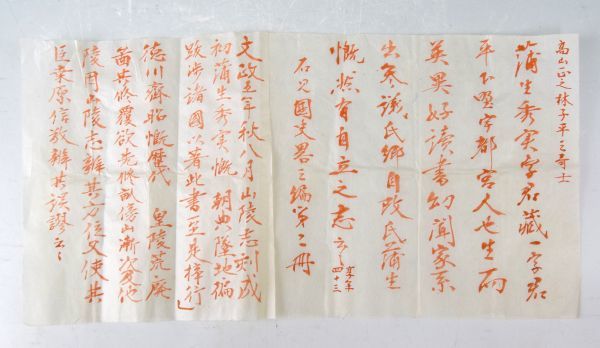 高山正之林子平之奇士
蒲生秀実字君蔵一字君
平下野宇都宮人也生而
英異好読書幼聞家系
出矣議氏郷自改氏蒲生
慨然有自立之志云々享年四十三
右見国史畧三編第二冊
文政五年秋八月山陵志刻成
初蒲生秀実慨朝典墜地徧
跋渉諸國以著此書至是梓行
徳川齊昭慨歴代皇陵荒廃
啚其修覆欲先修畝傍山漸次及他
陵用山陵志辨其方位又使其
臣桑原信毅辨其誤謬云々